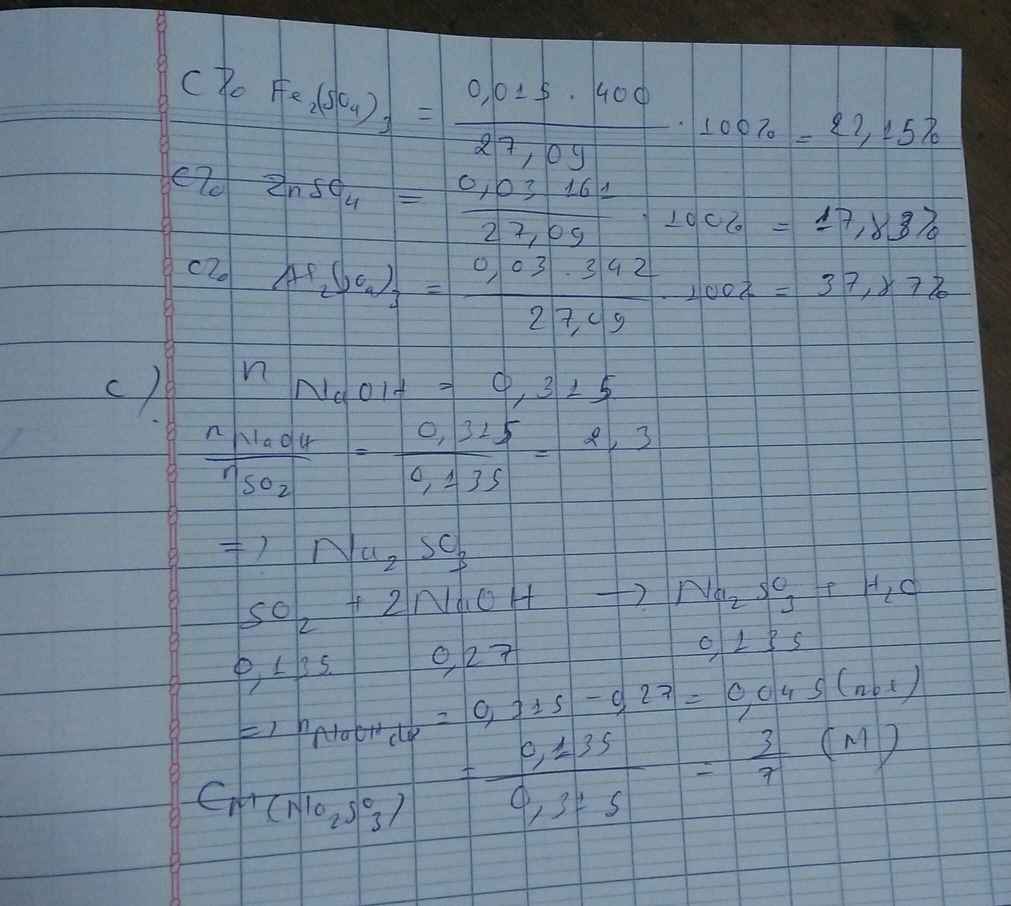 C% Fe₂(SO₄)₃ = 0,015 . 400 / 27,09 . 100% = 22,15%
C% ZnSO₄ = 0,03 161 / 27,09 . 100% = 17,83%
C% Al₂(SO₄)₃ = 0,03 . 342 / 27,09 . 100% = 37,87%
c) n NaOH = 0,315
nNaOH / nSO₂ = 0,315 / 0,135 = 2,3
=> Na₂SO₃
SO₂ + 2NaOH -> Na₂SO₃ + H₂O
0,135 0,27 0,135
=> nNaOH dư = 0,315 - 0,27 = 0,045 (mol)
CM(Na₂SO₃) = 0,135 / 0,315 = 3/7 (M)